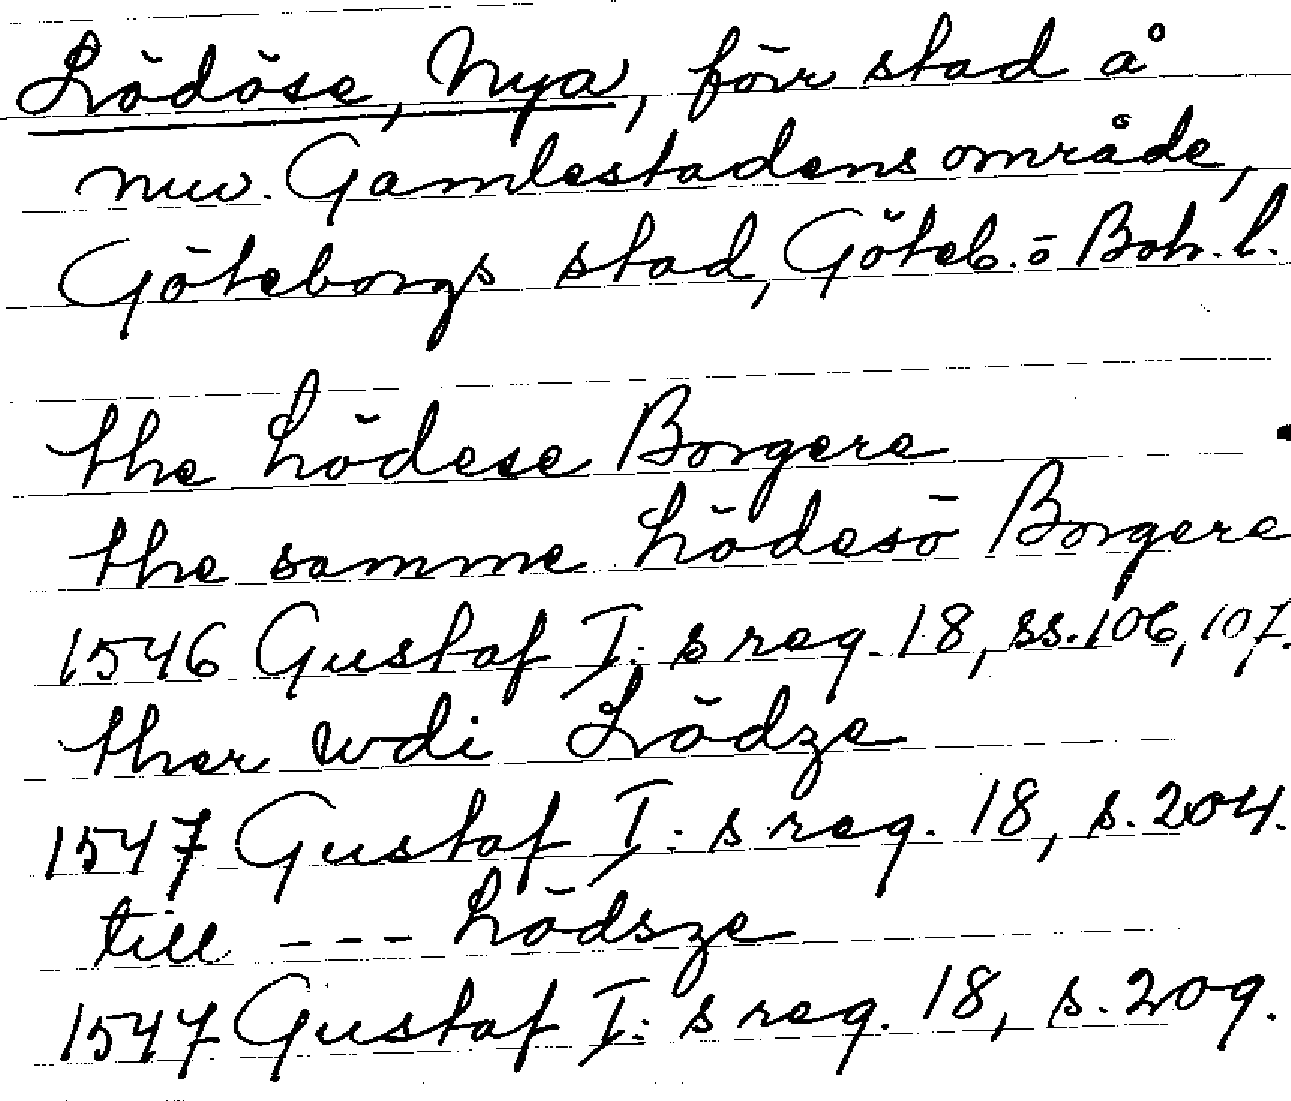 Lödöse, Nya, förr stad å
nuv. Gamlestadens område,
Göteborgs stad, Göteb. o Boh. l.
the Lödese Borgere
the samme Lödesö Borgere
1546 Gustaf I:s reg. 18, ss. 106, 107.
ther wdi Lödze
1547 Gustaf I:s reg. 18, s. 204.
till --- Lödsze
1547 Gustaf I:s reg. 18, s. 209.